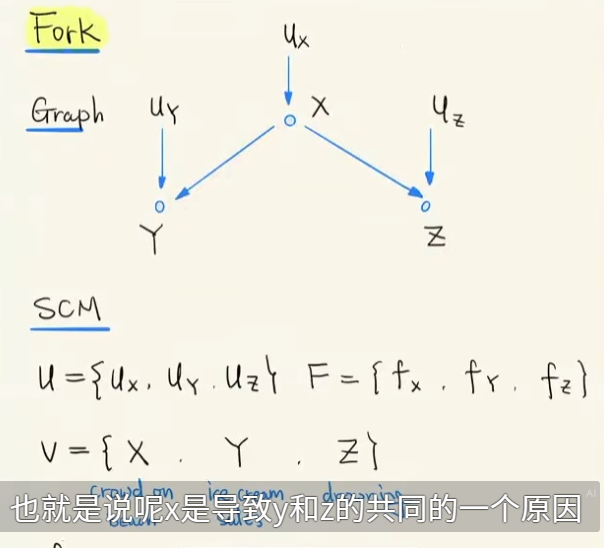 Fork
Graph
Ux
UY
X
Uz
Y
Z
SCM
U = {Ux, UY, Uz} F = {fx, fY, fz}
V = {X, Y, Z}
crowd on ice cream drowning
也就是说呢x是导致y和z的共同的一个原因